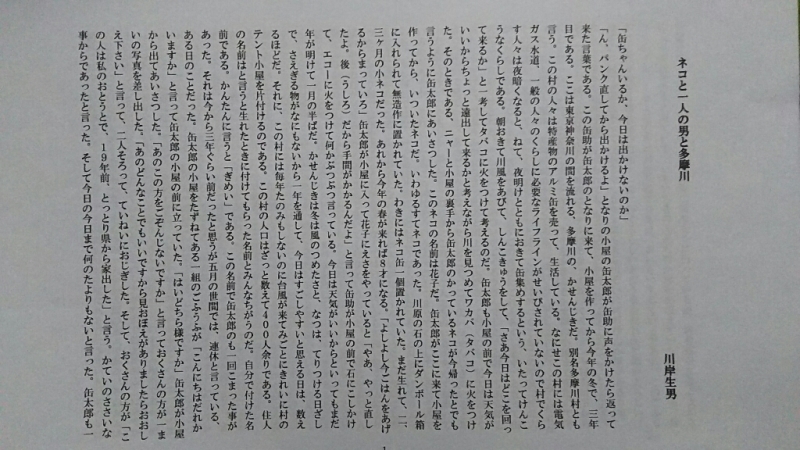 ネコと一人の男と多摩川
川岸生男
「缶ちゃんいるか、今日は出かけないのか」
「ん、パンク直してから出かけるよ」となりの小屋の缶太郎が缶助に声をかけたら返って
来た言葉である。この缶助が缶太郎のとなりに来て、小屋を作ってから今年の冬で、三年
目である。ここは東京神奈川の間を流れる、多摩川の、かせんじきだ。別名多摩川村とも
言う。この村の人々は特産物のアルミ缶を売って、生活している。なにせこの村には電気
ガス水道、一般の人々のくらしに必要なライフラインがせいびされていないので村でくら
す人々は夜暗くなると、ねて、夜明けとともにおきて缶集めするという、いたってけんこ
うなくらしである。朝おきて川風をあびて、しんこきゅうをして、「さあ今日はどこを回っ
て来るか」と一考してタバコに火をつけて考えるのだ。缶太郎も小屋の前で今日は天気が
いいからちょっと遠出して来るかと考えながら川を見つめてワカバ（タバコ）に火をつけ
た。そのときである、ニャーと小屋の裏手から缶太郎のかっているネコが今帰ったとでも
言うように缶太郎にあいさつした。このネコの名前は花子だ。缶太郎がここに来て小屋を
作ってから、いついたネコだ、いわゆるすてネコであった。川原の石の上にダンボール箱
に入れられて無造作に置かれていた。わきにはネコ缶一個置かれていた。まだ生れて、二、
三ヶ月の小ネコだった。あれから今年の春が来れば８才になる。「よしよし今ごはんをあげ
るからまっていろ」缶太郎が小屋に入って花子にえさをやっていると「やあ、やっと直し
たよ。後（うしろ）だから手間がかかるんだよ」と言って缶助が小屋の前で石にこしかけ
て、エコーに火をつけて何かぶつぶつ言っている。今日は天気がいいからといってもまだ
年が明けて一月の半ばだ。かせんじきは冬は風のつめたさと、なつは、てりつける日ざし
で、さえぎる物がなにもないから一年を通して、今日はすごしやすいと思える日は、数え
るほどだ。それに、この村には毎年たのみもしないのに台風が来てみごとにきれいに村の
テント小屋を片付けるのである。この村の人口はざっと数えて４００人余りである。住人
の名前はと言うと生れたときに付けてもらった名前とみんなちがうのだ。自分で付けた名
前である。かんたんに言うと「ぎめい」である。この名前で缶太郎のも一回こまった事が
あった。それは今から三年ぐらい前だったと思うが五月の世間では、連休と言っている、
ある日のことだった。缶太郎の小屋をたずねてある一組のごふうふが「こんにちはだれか
いますか」と言って缶太郎の小屋の前に立っていた。「はいどちら様ですか」缶太郎が小屋
から出てあいさつした。「あのこの方をごぞんじないですか」と言っておくさんの方が一ま
いの写真を差し出した。「あのどんなことでもいいですから見おぼえがありましたらおおし
え下さい」と言って、二人そろって、ていねいにおじぎした。そして、おくさんの方が「こ
の人は私のおとうとで、１９年前、とっとり県から家出した」と言う。かていのささいな
事からであったと言った。そして今日の今日まで何のたよりもないと言った。缶太郎も一
1